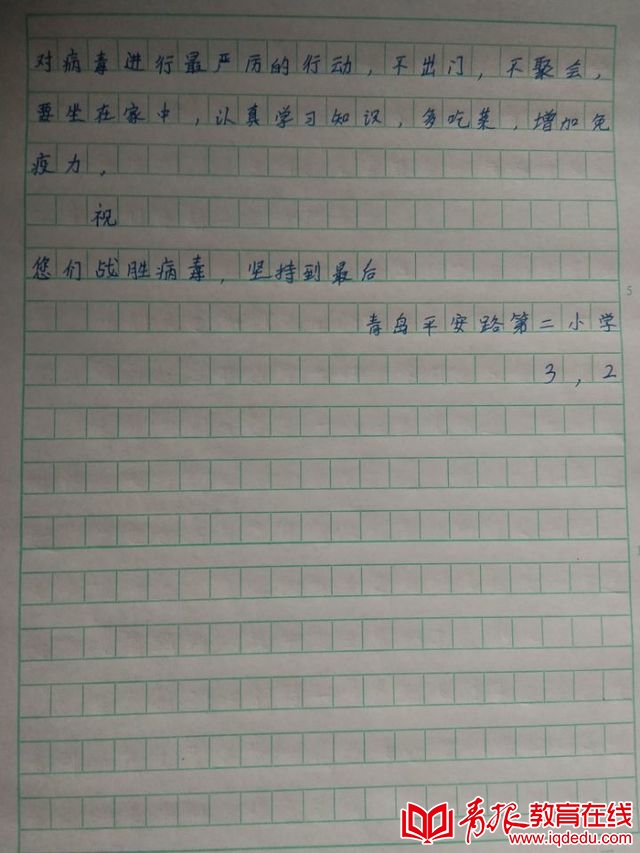 对病毒进行最严厉的行动，不出门，不聚会，
要坐在家中，认真学习知识，多吃菜，增加免
疫力。
祝
您们战胜病毒，坚持到最后
青岛平安路第二小学
3，2
5
1
青报教育在线
www.iqdedu.com